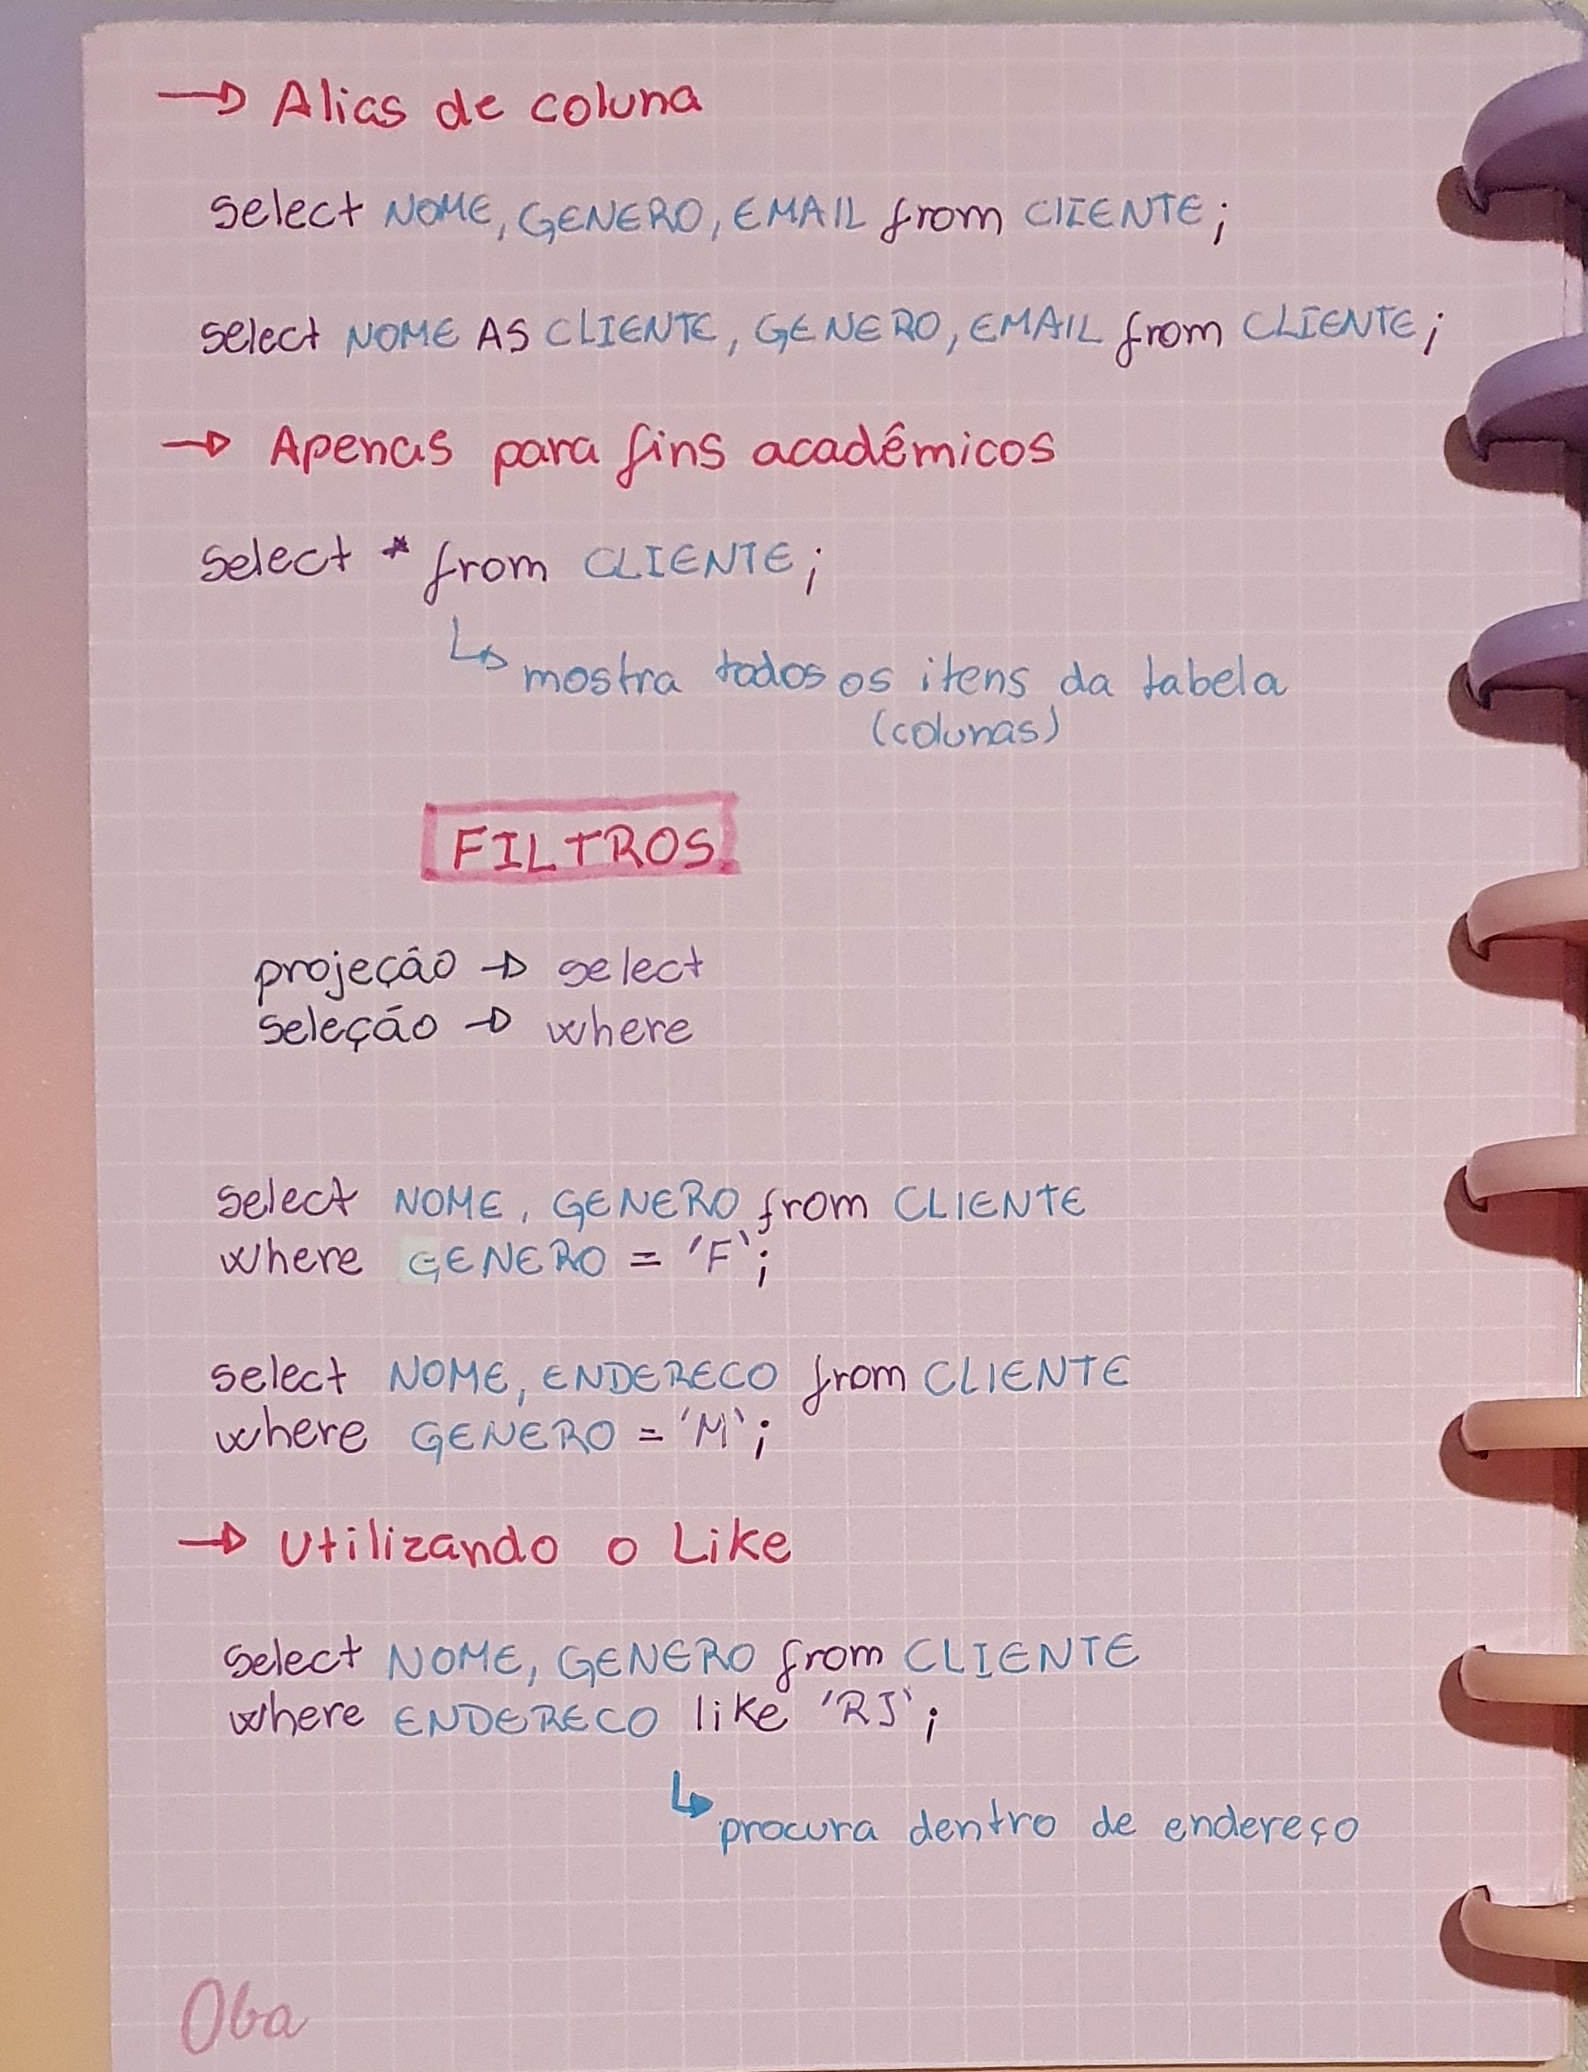 → Alias de coluna
select NOME, GENERO, EMAIL from ClIENTE;
select NOME AS CLIENTE, GENERO, EMAIL from CLIENTE;
→ Apenas para fins acadêmicos
select * from CLIENTE;
↳ mostra todos os itens da tabela
(colunas)
FILTROS
projeção → select
seleção → where
select NOME, GENERO from CLIENTE
where GENERO = 'F';
select NOME, ENDERECO from CLIENTE
where GENERO = 'M';
→ Utilizando o Like
select NOME, GENERO from CLIENTE
where ENDERECO like 'RJ';
↳ procura dentro de endereço
Oba